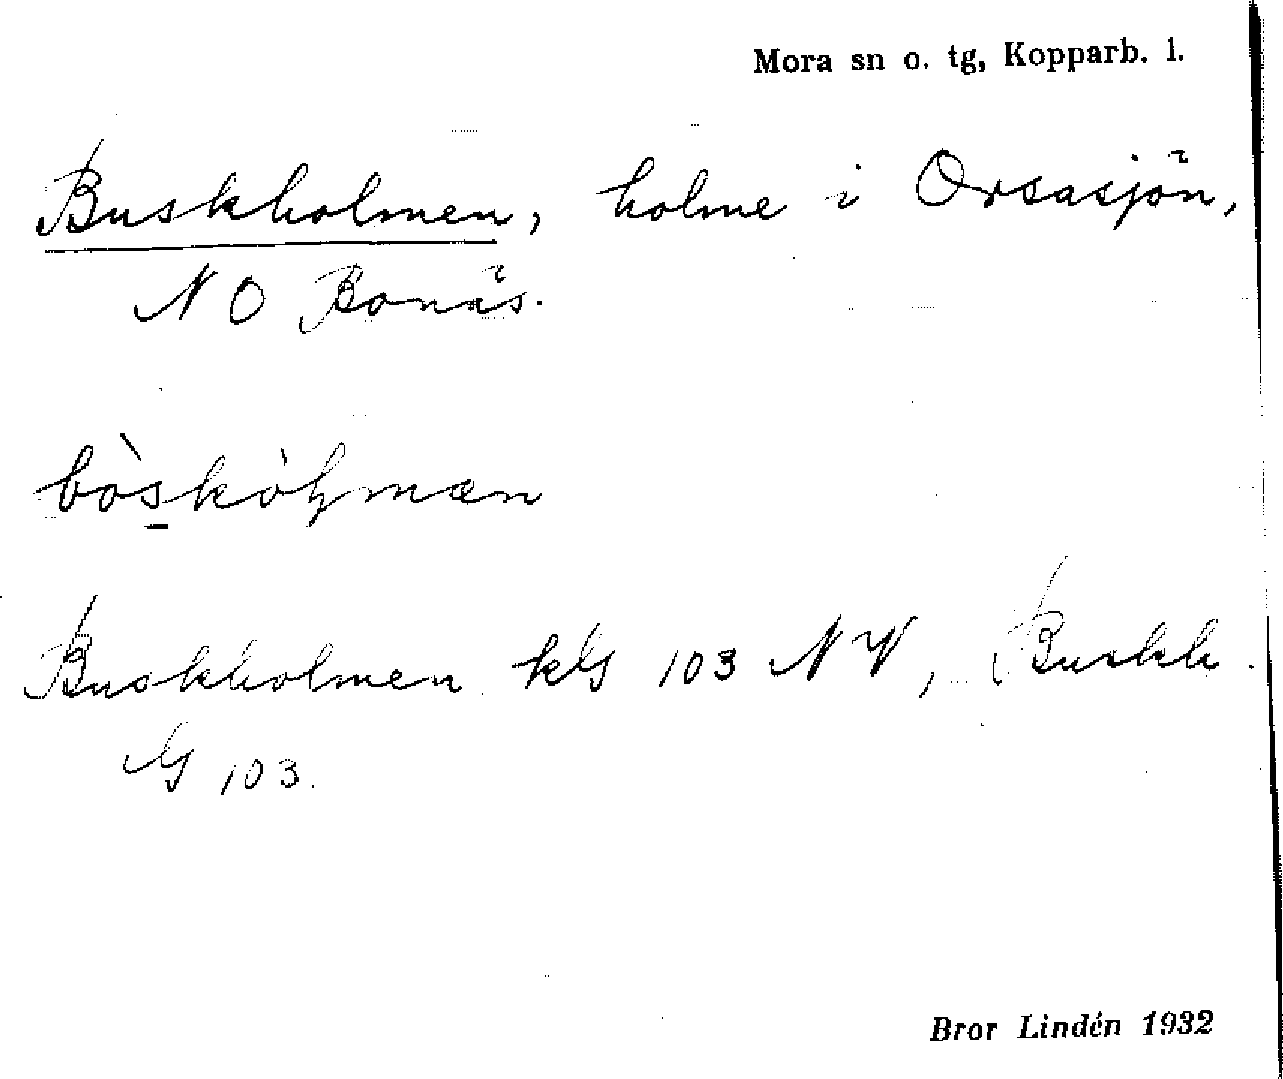 Mora sn o. tg, Kopparb. l.
Buskholmen, holme i Orsasjön,
NO Bonäs.
bòskòḷmæn
Buskholmen kG 103 NV, Buskh.
G 103.
Bror Lindén 1932